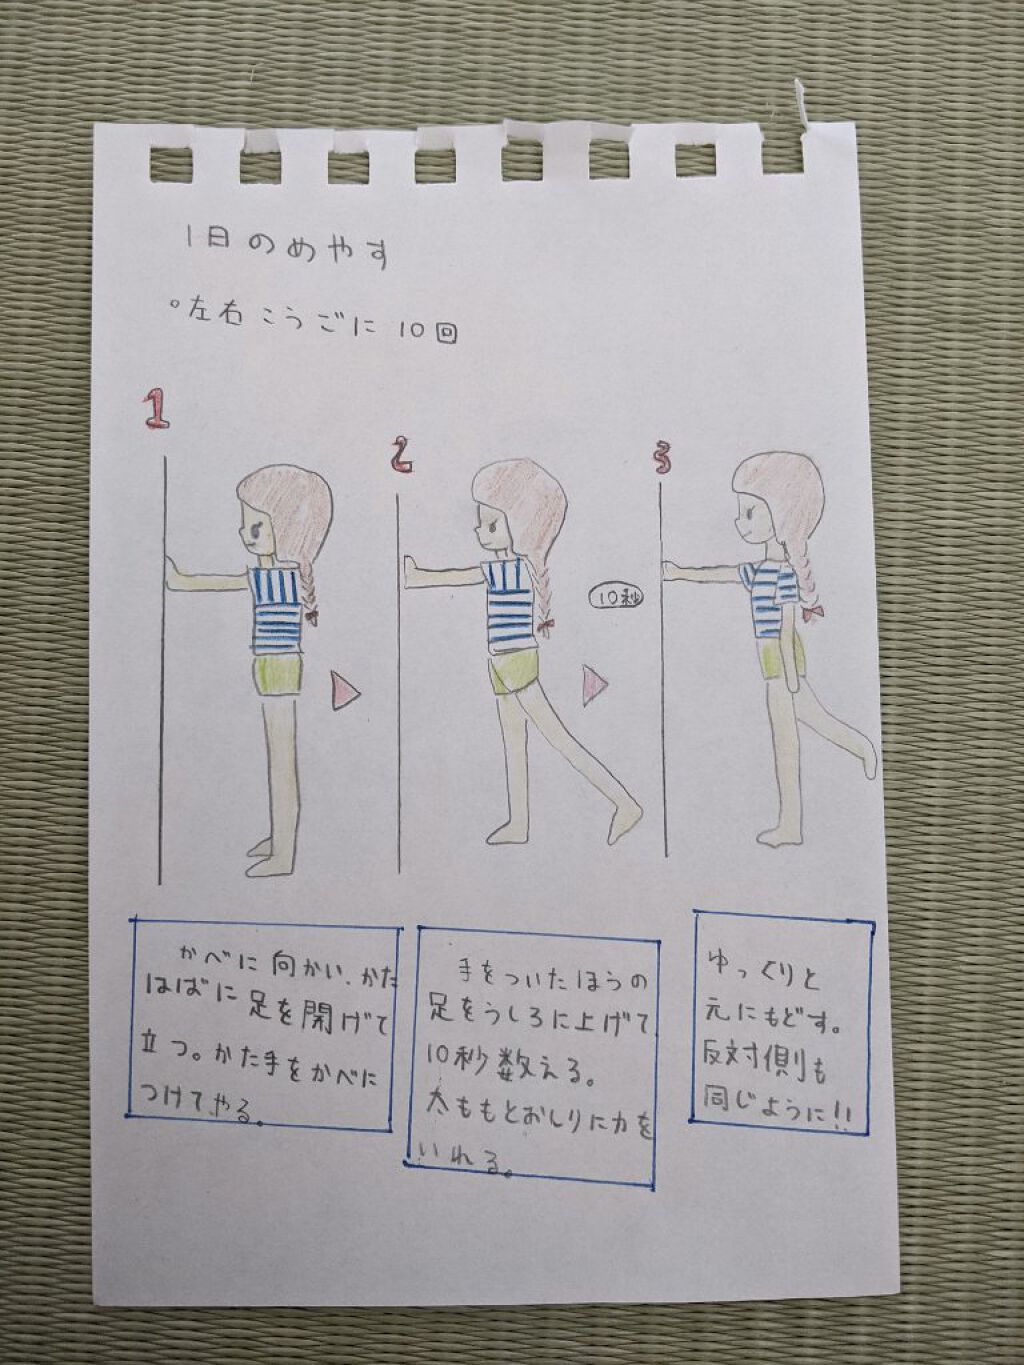 1日のめやす
○左右こうごに10回
1
2
3
10秒
かべに向かい、かた
はばに足を開げて
立つ。かた手をかべに
つけてやる。
手をついたほうの
足をうしろに上げて
10秒数える。
太ももとおしりに力を
いれる。
ゆっくりと
元にもどす。
反対側も
同じように!!